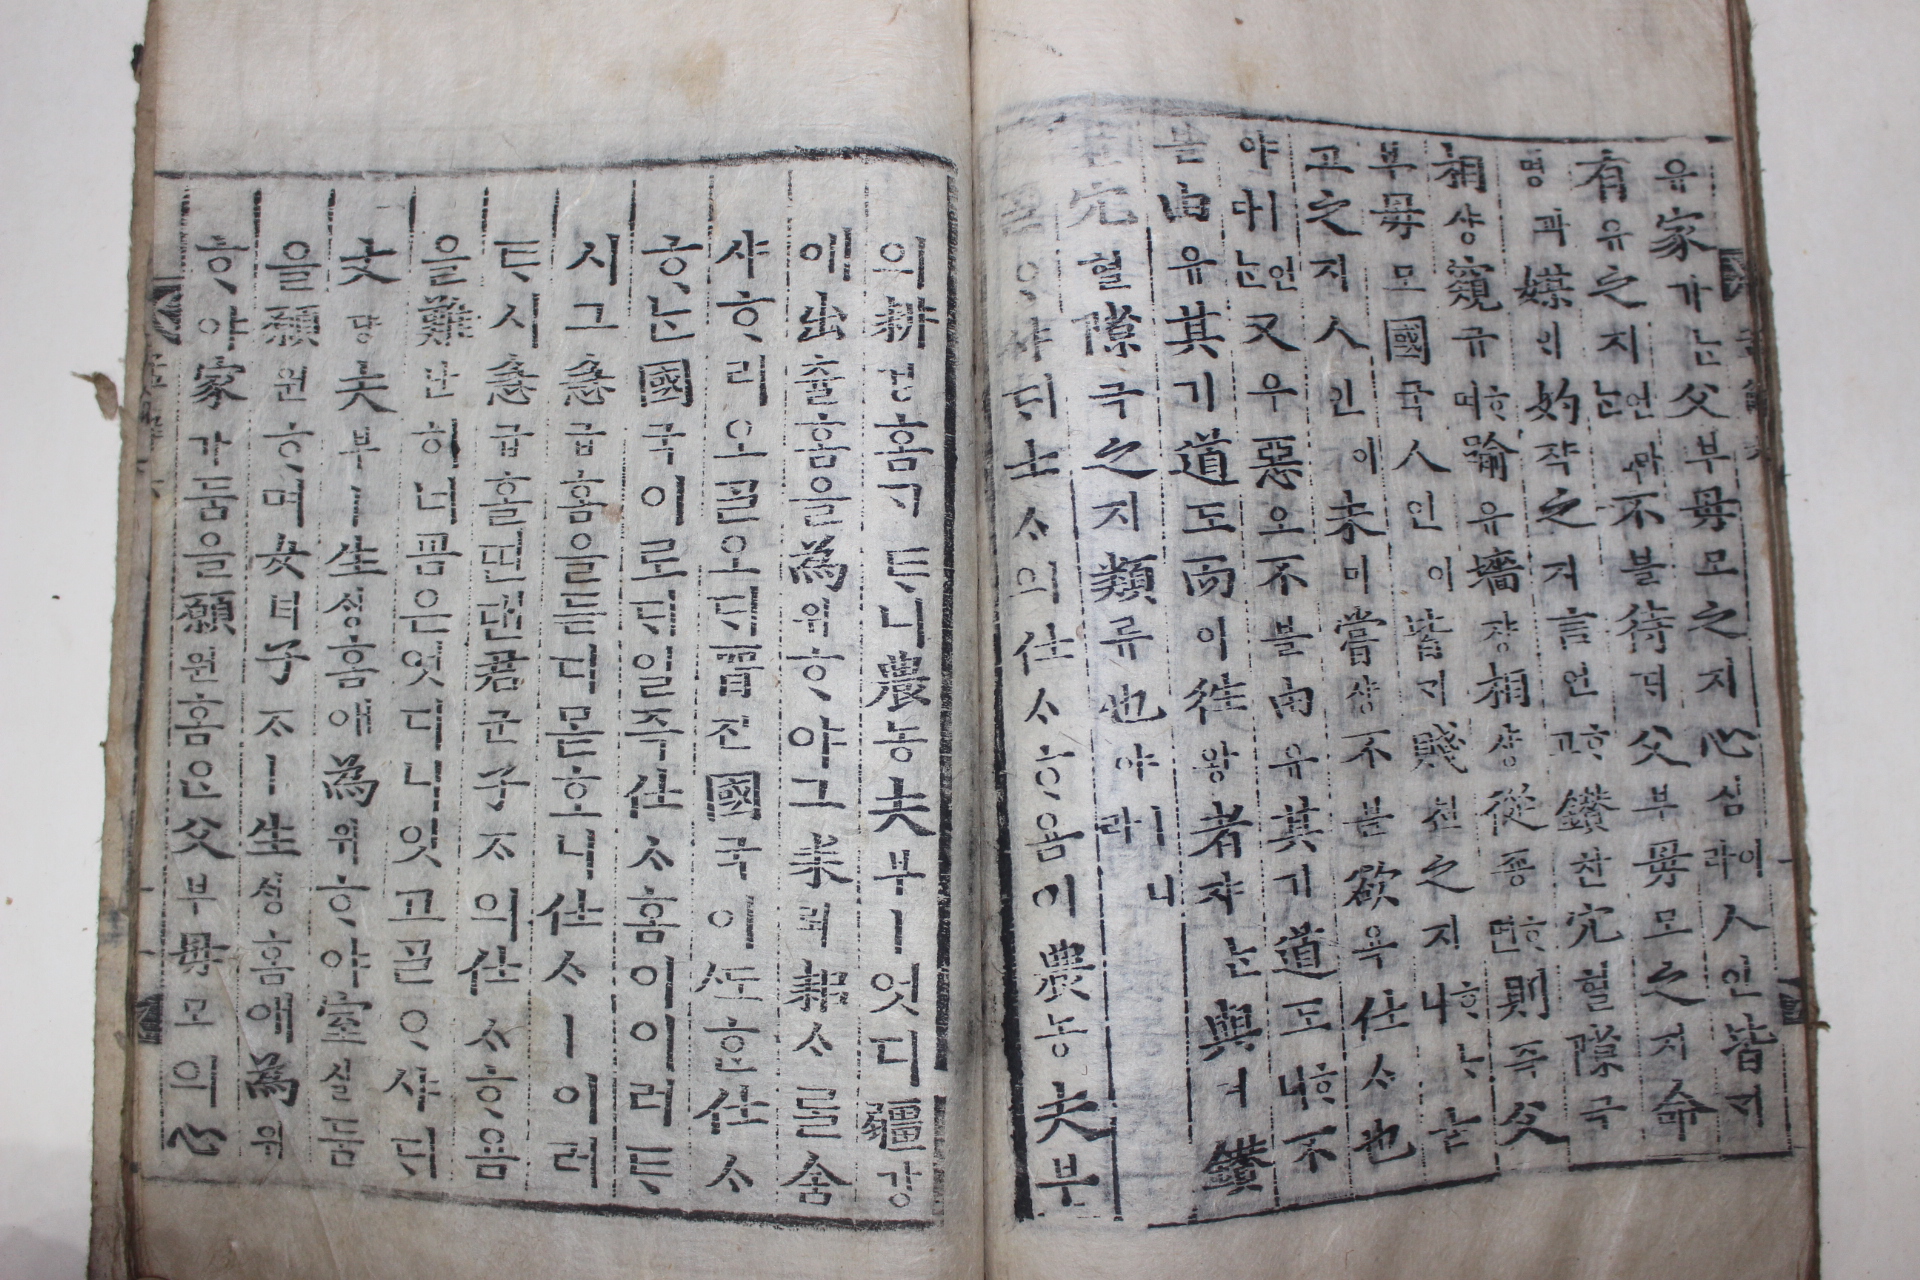 유家가ᄂᆞᆫ父부母모之지心심이라人인皆ᄀᆡ
有유之지언마ᄂᆞᆫ不블待ᄃᆡ父부母모之지命
명과媒ᄆᆡ妁쟉之지言언ᄒᆞ고鑽찬穴혈隙극
相샹窺규ᄒᆞ며踰유墻쟝相샹從죵ᄒᆞ면則즉父
부母모國국人인이皆ᄀᆡ賤쳔之지ᄒᆞᄂᆞ니
고之지人인이未미嘗샹不블欲욕仕ᄉᆞ也
야ㅣ언마ᄂᆞᆫ又우惡오不블由유其기道도ᄒᆞ니不
블由유其기道도而이往왕者쟈ᄂᆞᆫ與여鑽
穴혈隙극之지類류也야ㅣ니라
ᄋᆞ샤ᄃᆡ士ᄉᆞ의仕ᄉᆞᄒᆞ욤이農농夫부
의耕경홈ᄀᆞᄐᆞ니農농夫부ㅣ엇디疆강
애出츌홈을為위ᄒᆞ야그耒뢰耜ᄉᆞ를舍
샤ᄒᆞ리오ᄀᆞᆯ오ᄃᆡ晋진國국이ᄯᅩᄒᆞᆫ仕ᄉᆞ
ᄒᆞᄂᆞᆫ國국이로ᄃᆡ일즉仕ᄉᆞ홈이이러ᄐᆞ
시그急급홈을듣디몯호니仕ᄉᆞㅣ이러
ᄐᆞ시急급홀띤댄君군子ᄌᆞ의仕ᄉᆞᄒᆞ욤
을難난히너큼은엇디니잇고ᄀᆞᆯᄋᆞ샤ᄃᆡ
丈댱夫부ㅣ生ᄉᆡᆼ홈애為위ᄒᆞ야室실둠
을願원ᄒᆞ며女녀子ᄌᆞㅣ生ᄉᆡᆼ홈애為위
ᄒᆞ야家가둠을願원홈ᄋᆞᆫ父부母모의心